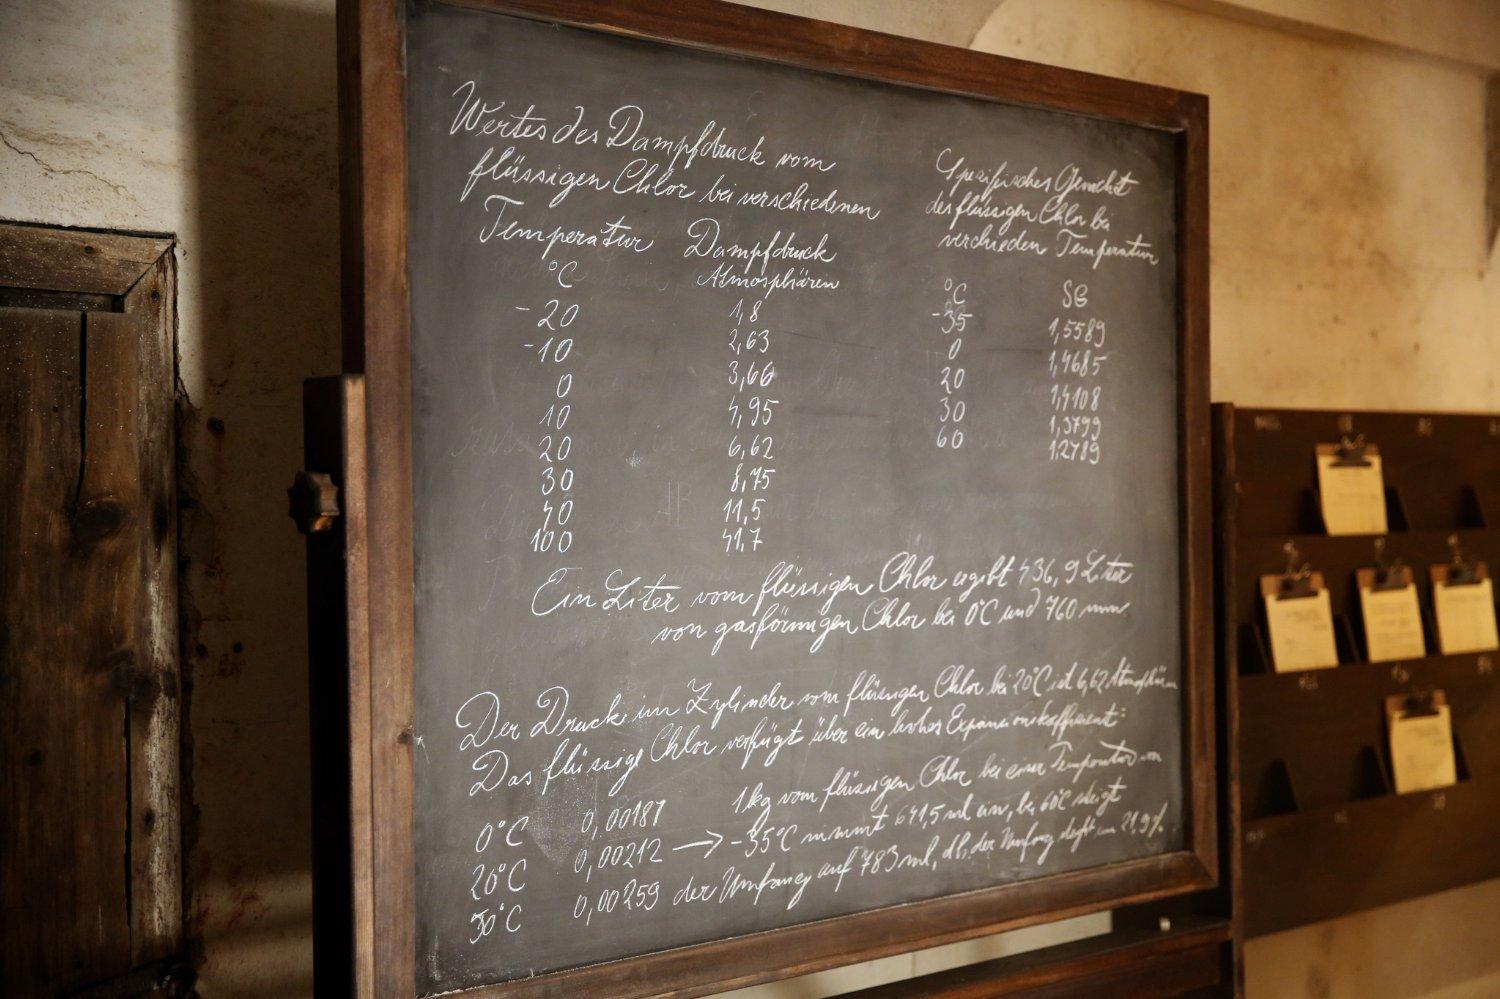 Wertes des Dampfdruck vom
flüssigen Chlor bei verschiedenen
Temperatur Dampfdruck
°C Atmosphären
-20 1,8
-10 2,63
0 3,66
10 4,95
20 6,62
30 8,75
40 11,5
100 41,7
Spezifisches Gewicht
des flüssigen Chlor bei
verchieden Temperatur
°C SG
-35 1,5589
0 1,4685
20 1,4108
30 1,3799
60 1,2789
Ein Liter vom flüssigen Chlor ergibt 436,9 Liter
von gasförmigen Chlor bei 0°C und 760 mm
Der Druck im Zylinder vom flüssigen Chlor bei 20°C ist 6,62 Atmosphären
Das flüssige Chlor verfügt über ein hohes Expansionskoffizient:
0°C 0,00187
20°C 0,00212 →
30°C 0,00259
1 kg vom flüssigen Chlor bei einer Temperatur von
-35°C nimmt 641,5 ml ein, bei 60°C steigt
der Umfang auf 783 ml, d.h. der Umfang 21,9%